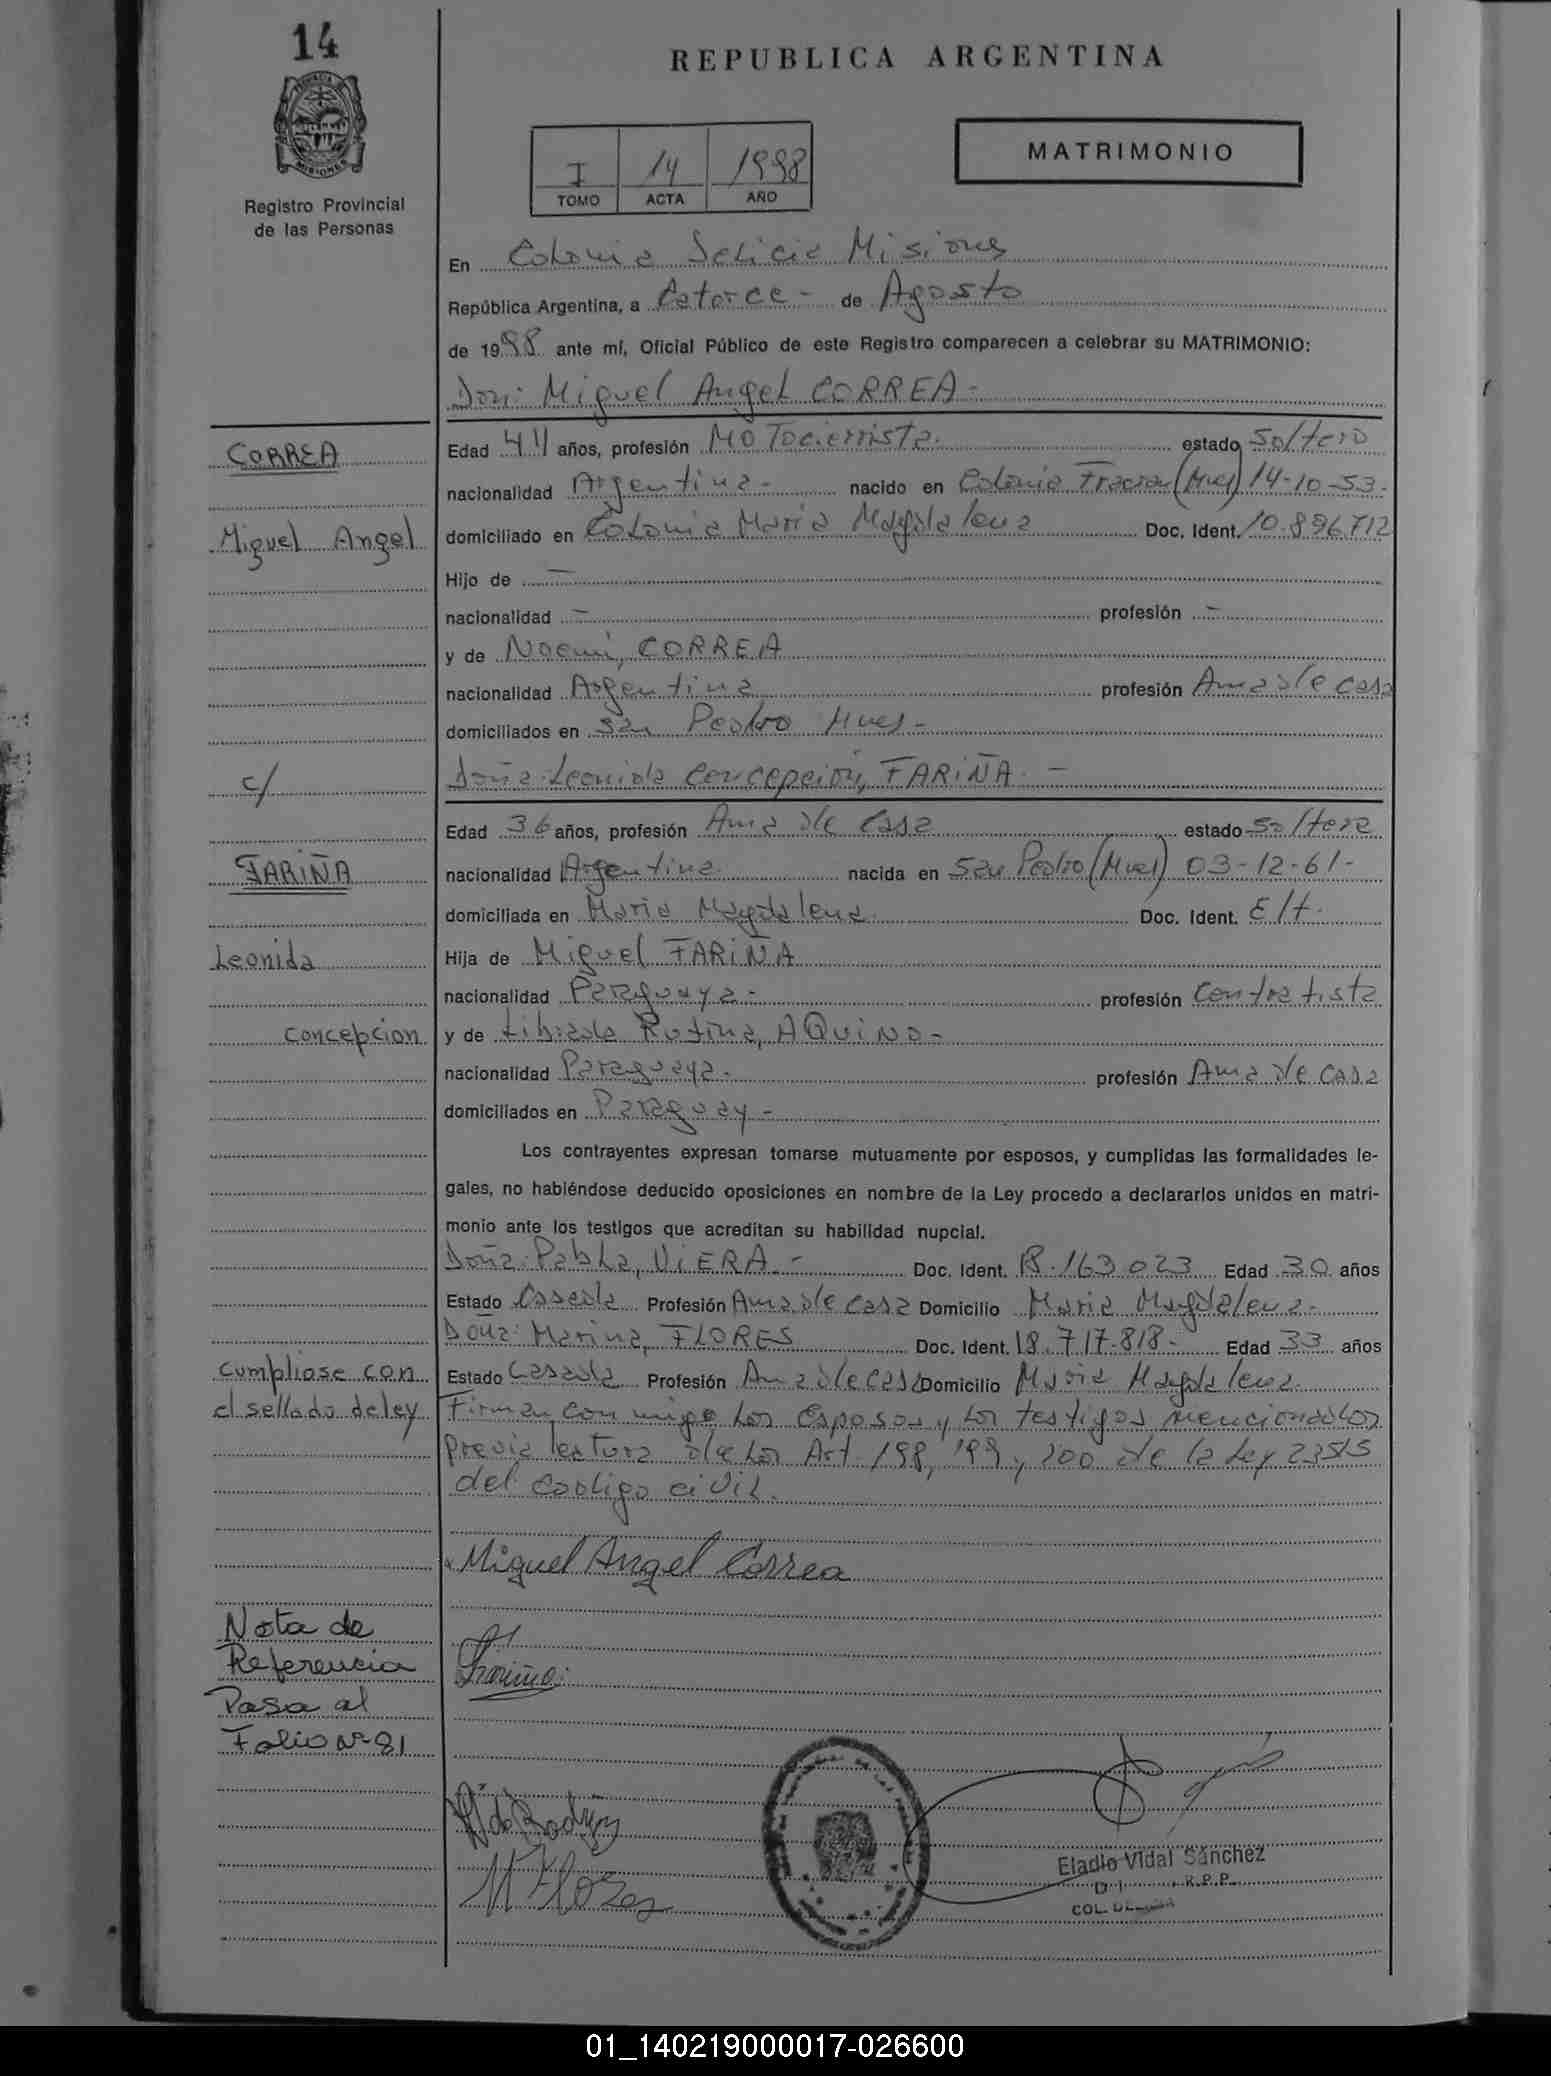 14
REPUBLICA ARGENTINA
PROVINCIA DE MISIONES
Registro Provincial
de las Personas
I 14 1998
TOMO ACTA AÑO
MATRIMONIO
En Colonia Delicia Misiones
República Argentina, a Catorce - de Agosto
de 1998 ante mí, Oficial Público de este Registro comparecen a celebrar su MATRIMONIO:
Don: Miguel Angel CORREA -
CORREA
Miguel Angel
Edad 44 años, profesión Motocierrista. estado Soltero
nacionalidad Argentina - nacido en Colonia Fracran (Mnes) 14-10-53-
domiciliado en Colonia Maria Magdalena Doc. Ident. 10.896.712
Hijo de —
nacionalidad — profesión —
y de Noemi, CORREA
nacionalidad Argentina profesión Ama de Casa
domiciliados en San Pedro Mnes -
c/
Doña: Leonida Concepción, FARIÑA. —
FARIÑA
Leonida
Concepcion
Edad 36 años, profesión Ama de Casa estado Soltera
nacionalidad Argentina. nacida en San Pedro (Mnes) 03-12-61-
domiciliada en Maria Magdalena. Doc. Ident. E/t.
Hija de Miguel FARIÑA
nacionalidad Paraguaya - profesión Contratista
y de Librada Rufina, AQUINO -
nacionalidad Paraguaya - profesión Ama de Casa
domiciliados en Paraguay -
Los contrayentes expresan tomarse mutuamente por esposos, y cumplidas las formalidades le-
gales, no habiéndose deducido oposiciones en nombre de la Ley procedo a declararlos unidos en matri-
monio ante los testigos que acreditan su habilidad nupcial.
Doña: Pabla, VIERA - Doc. Ident. 18.163.023 Edad 30 años
Estado Casada Profesión Ama de Casa Domicilio Maria Magdalena -
Doña: Marina, FLORES Doc. Ident. 18.717.818- Edad 33 años
Estado Casada Profesión Ama de Casa Domicilio Maria Magdalena.
Cumpliose con
el sellado de ley
Firman con migo los Esposos y los testigos mencionados
previa lectura de los Art. 198, 199, 200 de la ley 23515
del codigo civil.
Miguel Angel Correa
Nota de
Referencia
Pasa al
Folio Nº 81
Fariña.
M Flores
Eladio Vidal Sánchez
R.P.P.
01_140219000017-026600